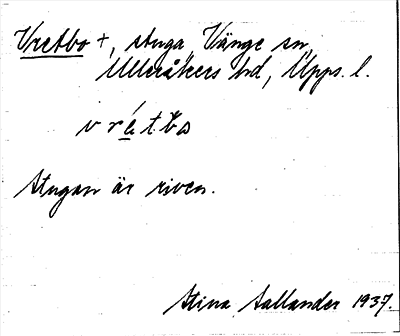 Vretbo +, stuga, Vänge sn,
Ulleråkers hd, Upps. l.
vrét.bo
Stugan är riven.
Stina Sallander 1937.